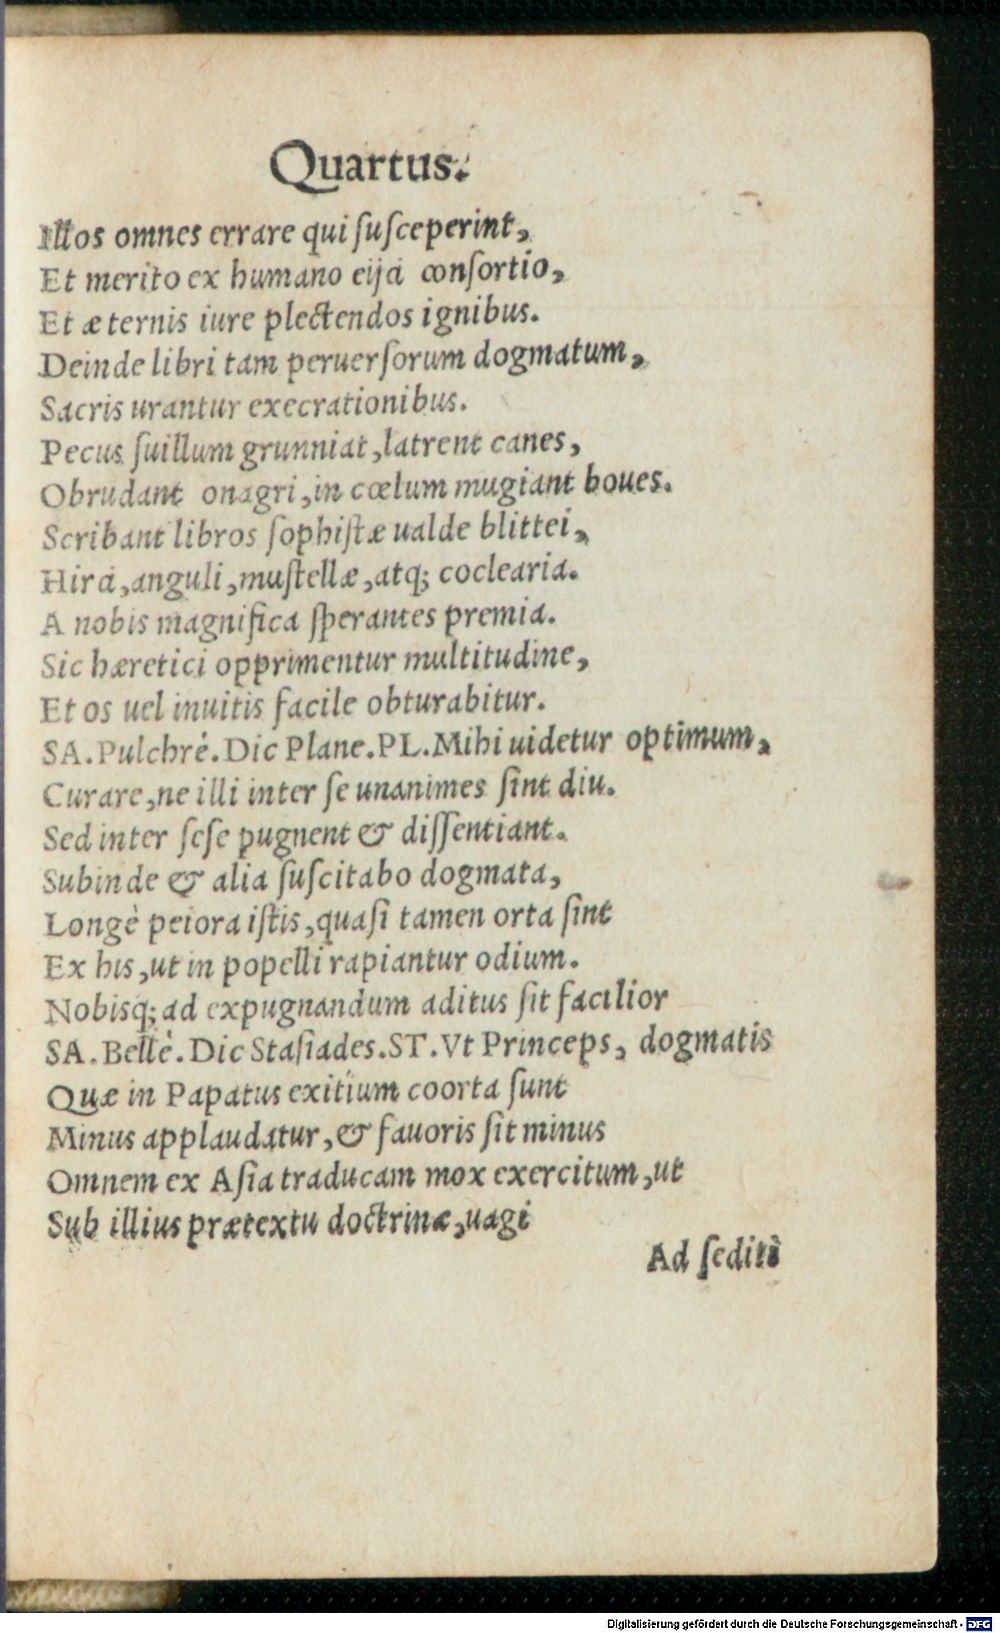 Quartus.
Illos omnes errare qui susceperint,
Et merito ex humano eijci consortio,
Et æternis iure plectendos ignibus.
Deinde libri tam peruersorum dogmatum,
Sacris urantur execrationibus.
Pecus suillum grunniat, latrent canes,
Obrudant onagri, in cœlum mugiant boues.
Scribant libros sophistæ ualde blittei,
Hirci, anguli, mustellæ, atq; coclearia.
A nobis magnifica sperantes premia.
Sic hæretici opprimentur multitudine,
Et os uel inuitis facile obturabitur.
SA. Pulchrè. Dic Plane. PL. Mihi uidetur optimum,
Curare, ne illi inter se unanimes sint diu.
Sed inter sese pugnent & dissentiant.
Subinde & alia suscitabo dogmata,
Longè peiora istis, quasi tamen orta sint
Ex his, ut in popelli rapiantur odium.
Nobisq; ad expugnandum aditus sit facilior
SA. Bellè. Dic Stasiades. ST. Vt Princeps, dogmatis
Quæ in Papatus exitium coorta sunt
Minus applaudatur, & fauoris sit minus
Omnem ex Asia traducam mox exercitum, ut
Sub illius prætextu doctrinæ, uagi
Ad seditì
Digitalisierung gefördert durch die Deutsche Forschungsgemeinschaft - DFG